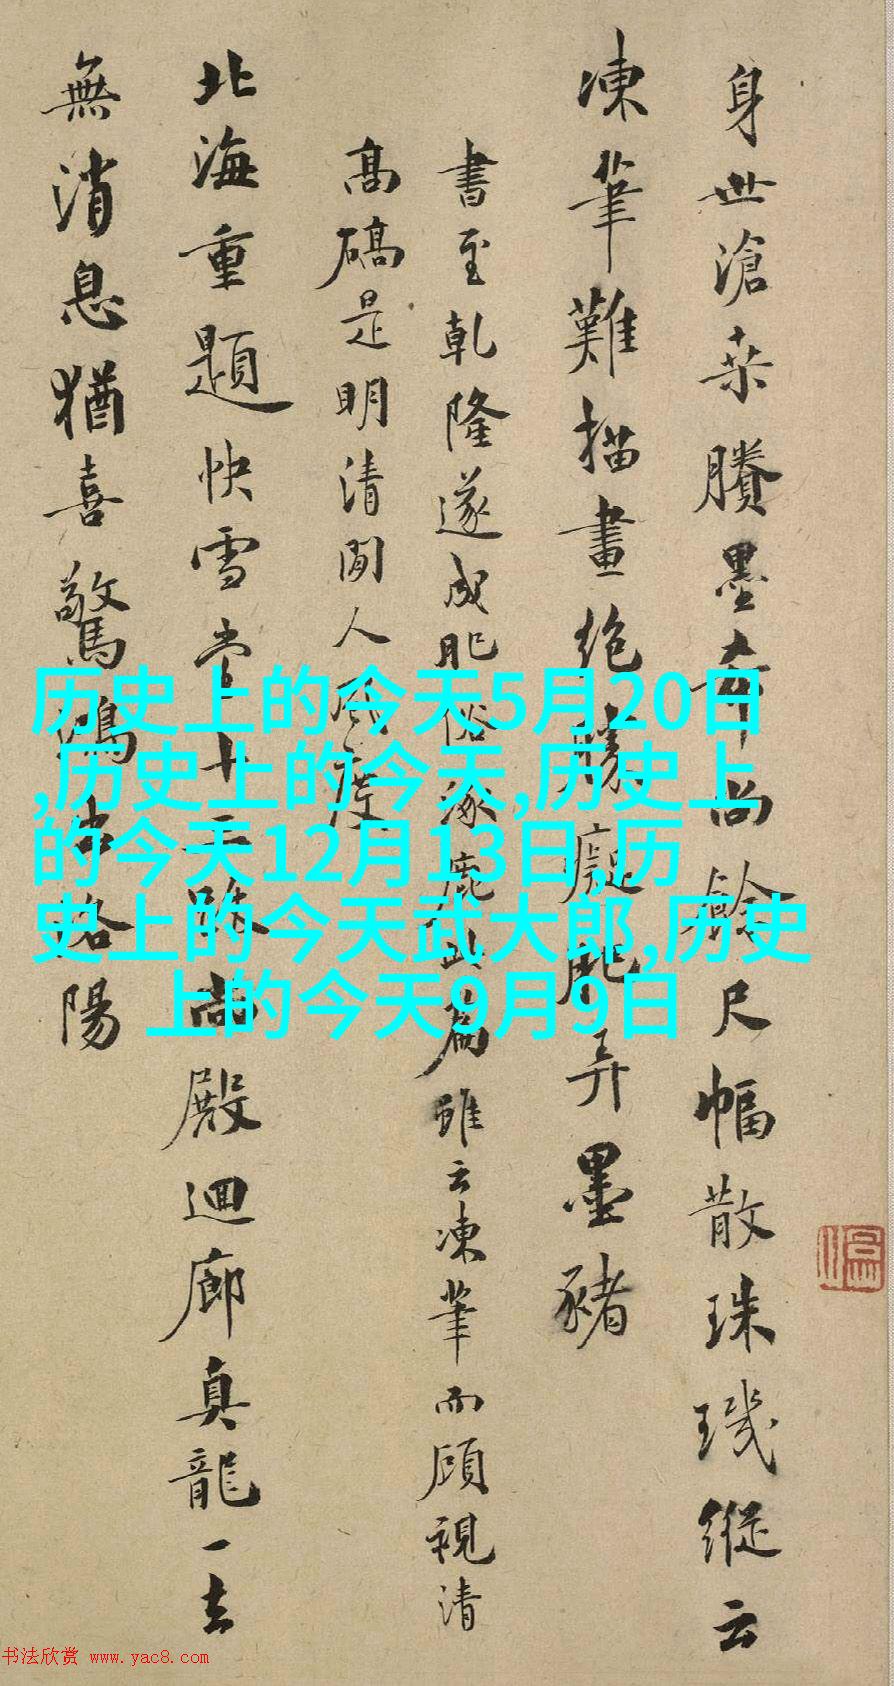 身世滄桑賸墨華尚餘尺幅散珠璣縱云
凍筆難描畫絕勝癡肥弄墨豬
書至乾隆遂成肥俗涿鹿此篇雖云凍筆而顧視清
高碻是明清間人風度
北海重題快雪堂十三跋尚殿迴廊真龍一去
無消息猶喜驚鴻出洛陽
历史上的今天5月20日
,历史上的今天,历史上
的今天12月13日,历
史上的今天武大郎,历史
上的今天9月9日
书法欣赏 www.yac8.com